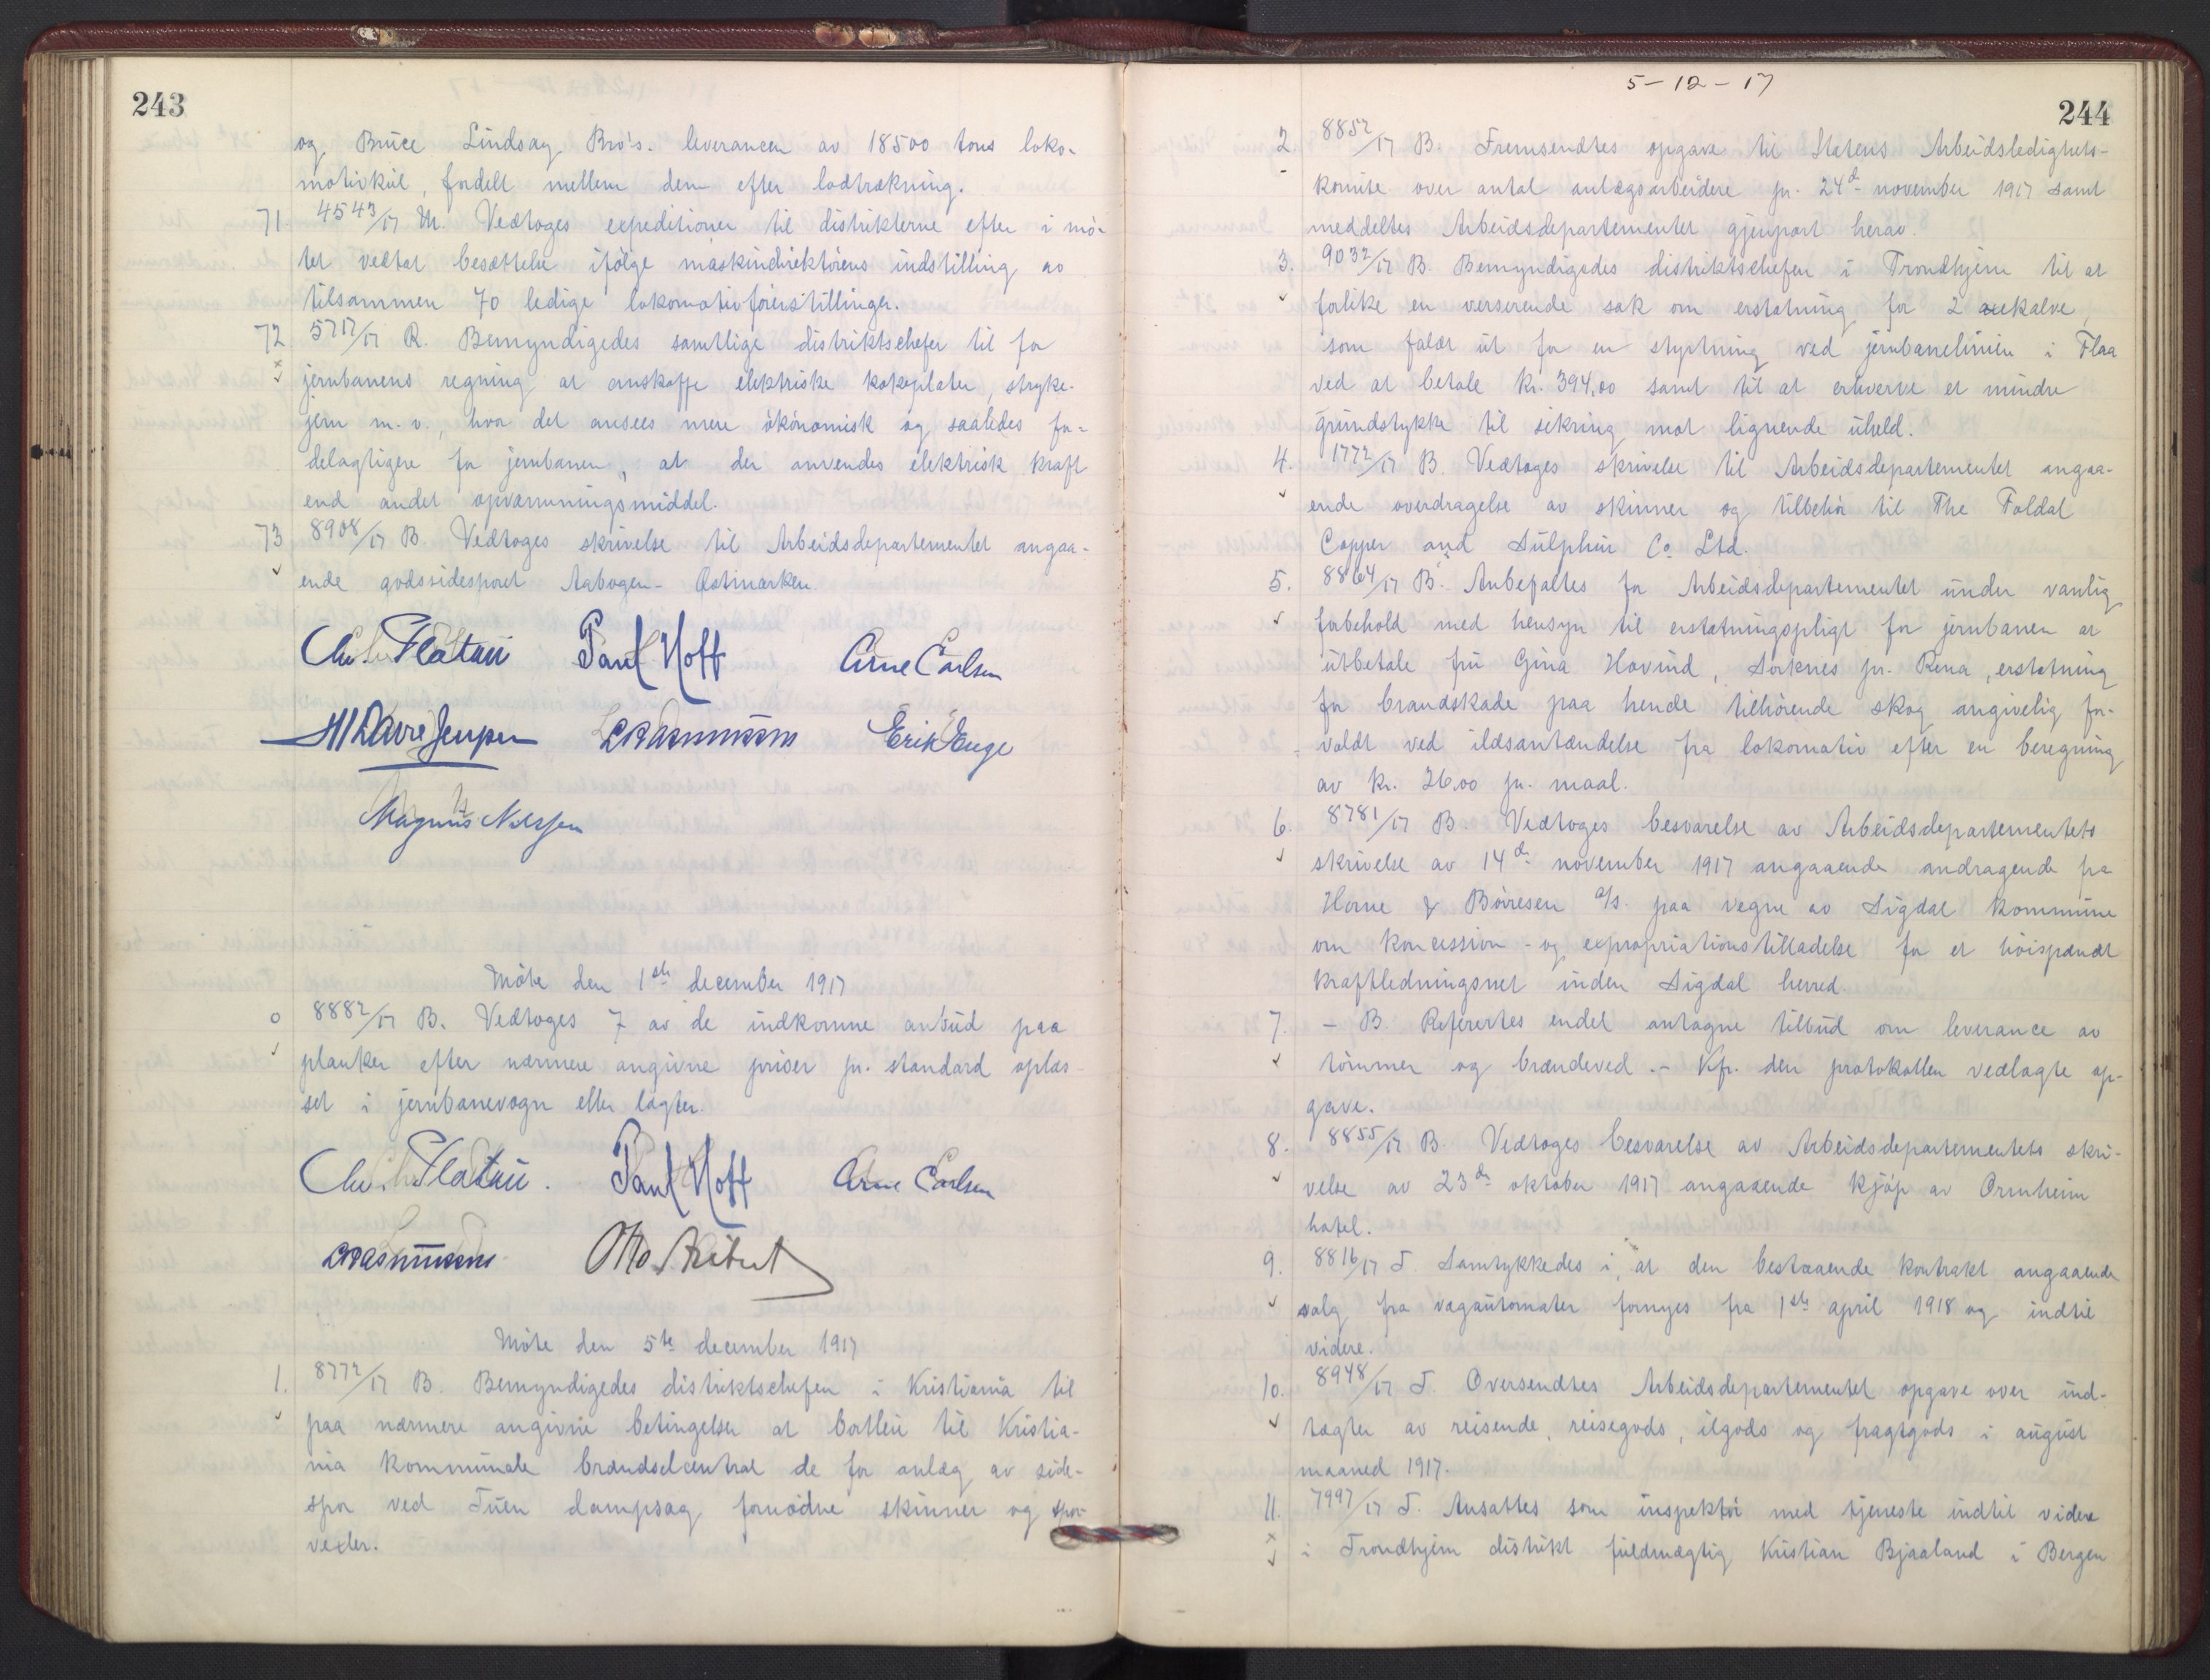 243
og Bruce Lindsay Bro's. leverancen av 18500 tons loko-
motivkul, fordelt mellem dem efter lodtrækning.
71. 4543/17 M. Vedtoges expeditioner til distrikterne efter i mö-
tet vedtat besættelse ifölge maskindirektörens indstilling av
tilsammen 70 ledige lokomotivförerstillinger.
72. 5717/17 R. Bemyndigedes samtlige distriktschefer til for
jernbanens regning at anskaffe elektriske kokeplater, stryke-
jern m. v., hvor det ansees mere ökonomisk og saaledes for-
delagtigere for jernbanen, at der anvendes elektrisk kraft
end andet opvarmningsmiddel.
73 8908/17 B. Vedtoges skrivelse til Arbeidsdepartementet angaa-
ende godssidesporet Aabogen - Östmarken.
Chr. Platou Paul Hoff Arne Carlsen
Erik Enge
Magnus Nilssen
Möte den 1ste december 1917
8882/17 B. Vedtoges 7 av de indkomne anbud paa
planker efter nærmere angivne priser pr. standard oplæs-
set i jernbanevogn eller lægter.
Chr. Platou. Paul Hoff Arne Carlsen
Otto
Möte den 5te december 1917
1. 8772/17 B. Bemyndigedes distriktschefen i Kristiania til
paa nærmere angivne betingelser at bortleie til Kristia-
nia kommunale brændselcentral de for anlæg av side-
spor ved Tuen dampsag fornödne skinner og spor-
vexler.
5-12-17
244
2. 8852/17 B. Fremsendtes opgave til Statens Arbeidsledighets-
komite over antal anlægsarbeidere pr. 24de november 1917 samt
meddeltes Arbeidsdepartementet gjenpart herav.
3. 9032/17 B. Bemyndigedes distriktschefen i Trondhjem til at
forlike en verserende sak om erstatning for 2 kalve,
som faldt ut for en styrtning ved jernbanelinien i Flaa
ved at betale kr. 394,00 samt til at erhverve et mindre
grundstykke til sikring mot lignende uheld.
4. 1772/17 B. Vedtoges skrivelse til Arbeidsdepartementet angaa-
ende overdragelse av skinner og tilbehör til The Foldal
Copper and Sulphur Co Ltd.
5. 8864/17 B. Anbefaltes for Arbeidsdepartementet under vanlig
forbehold med hensyn til erstatningspligt for jernbanen at
utbetale fru Gina Hovind, Sörknes pr. Rena, erstatning
for brandskade paa hende tilhörende skog angivelig for-
voldt ved ildsantændelse fra lokomotiv efter en beregning
av kr. 26,00 pr. maal.
6. 8781/17 B. Vedtoges besvarelse av Arbeidsdepartementets
skrivelse av 14de november 1917 angaaende andragende fra
Horne & Böiresen A/S. paa vegne av Sigdal kommune
om koncession- og expropriationstilladelse for et höispændt
kraftledningsnet inden Sigdal herred.
7. - B. Refererte​s endel antagne tilbud om leverance av
tömmer og brændeved. - Kfr. den protokollen vedlagte op-
gave.
8. 8855/17 B. Vedtoges besvarelse av Arbeidsdepartementets skri-
velse av 23de oktober 1917 angaaende kjöp av Ormheim
hotel.
9. 8816/17 T. Samtykkedes i, at den bestaaende kontrakt angaaende
salg fra vægautomater fornyes fra 1ste april 1918 og indtil
videre.
10. 8948/17 T. Oversendtes Arbeidsdepartementet opgave over ind-
tægter av reisende, reisegods, ilgods og fragtgods i august
maaned 1917.
11. 7997/17 T. Ansattes som inspektör med tjeneste indtil videre
i Trondhjem distrikt fuldmægtig Kristian Bjaaland i Bergen